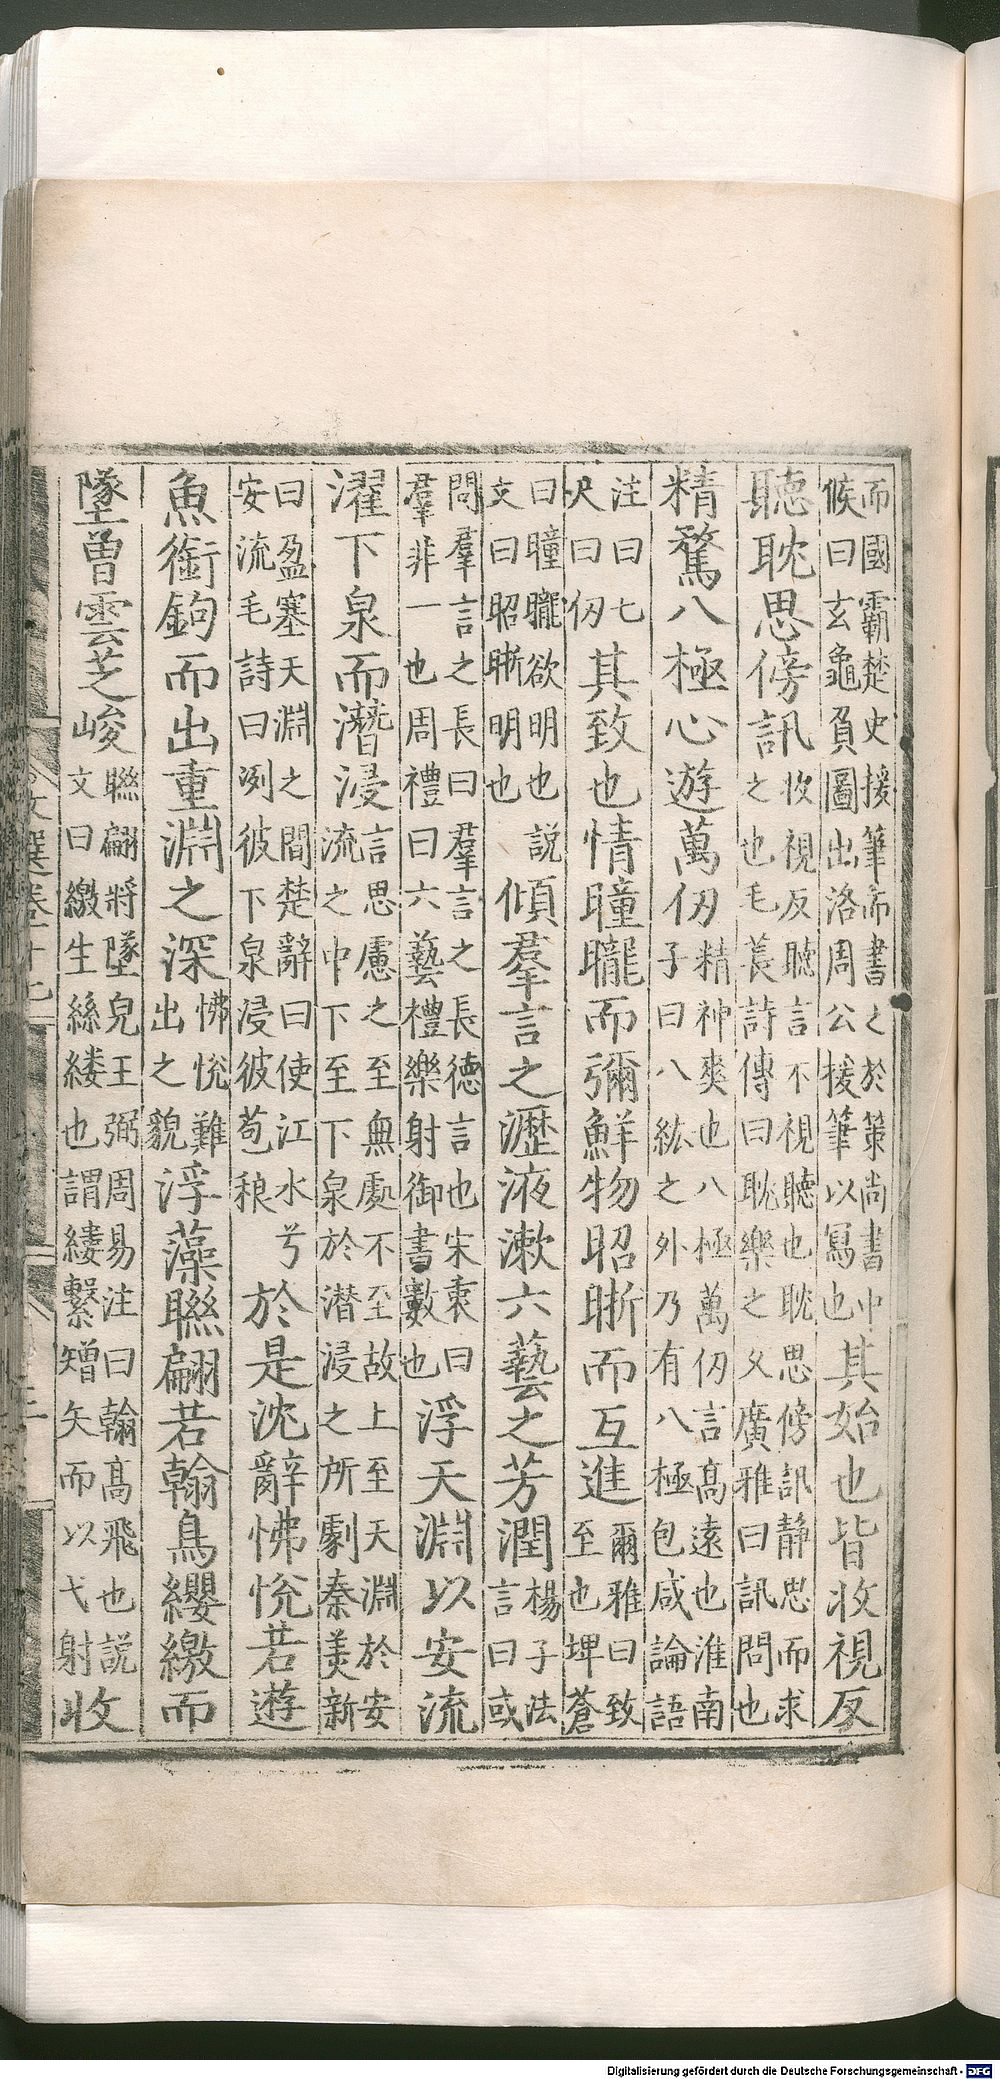 而國霸楚史援筆而書之於策尚書中候曰玄龜負圖出洛周公援筆以寫也其始也皆收視反
聽耽思傍訊收視反聽言不視聽也耽思傍訊静思而求之也毛萇詩傳曰耽樂之久廣雅曰訊問也
精騖八極心遊萬仞精神爽也八極萬仞言高遠也淮南子曰八紘之外乃有八極包咸論語
注曰七尺曰仞其致也情瞳矓而彌鮮物昭晣而互進爾雅曰致至也埤蒼
曰瞳矓欲明也說文曰昭晣明也傾羣言之瀝液漱六藝之芳潤楊子法言曰或
問羣言之長曰羣言之長德言也宋衷曰羣非一也周禮曰六藝禮樂射御書數也浮天淵以安流
濯下泉而潛浸言思慮之至無處不至故上至天淵於安流之中下至下泉於潛浸之所劇秦美新
曰盈塞天淵之間楚辭曰使江水兮安流毛詩曰洌彼下泉浸彼苞稂於是沈辭怫悅若遊
魚銜鉤而出重淵之深怫悅難出之貌浮藻聯翩若翰鳥纓繳而
墜曾雲之峻聯翩將墜皃王弼周易注曰翰高飛也說文曰繳生絲縷也謂縷繫矰矢而以弋射收
文選卷十七
二
Digitalisierung gefördert durch die Deutsche Forschungsgemeinschaft - DFG